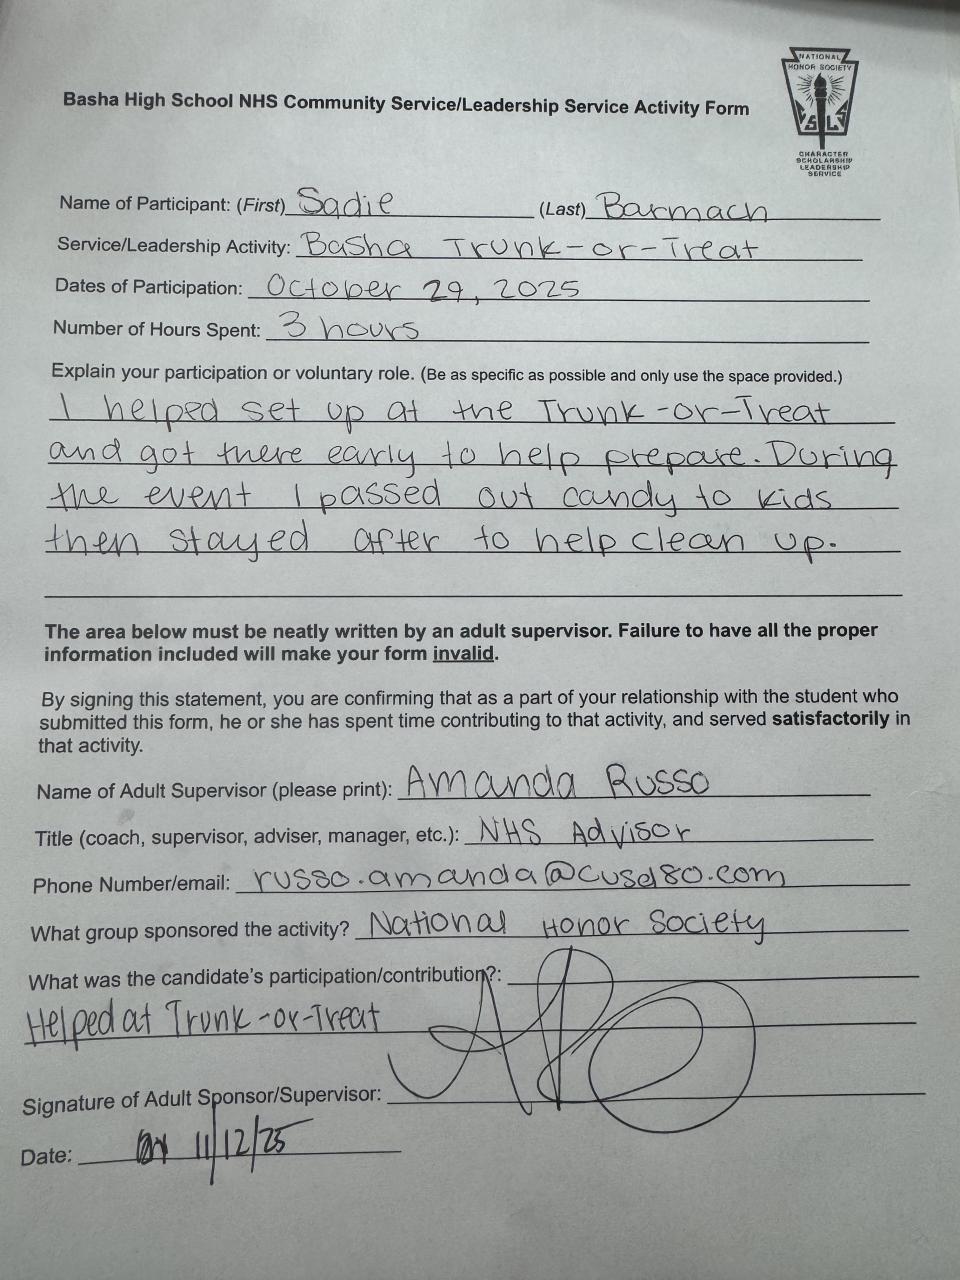 NATIONAL
HONOR SOCIETY
S L S
CHARACTER
SCHOLARSHIP
LEADERSHIP
SERVICE
Basha High School NHS Community Service/Leadership Service Activity Form
Name of Participant: (First) Sadie (Last) Barmach
Service/Leadership Activity: Basha Trunk-or-Treat
Dates of Participation: October 29, 2025
Number of Hours Spent: 3 hours
Explain your participation or voluntary role. (Be as specific as possible and only use the space provided.)
I helped set up at the Trunk-or-Treat
and got there early to help prepare. During
the event I passed out candy to kids
then stayed after to help clean up.
The area below must be neatly written by an adult supervisor. Failure to have all the proper
information included will make your form invalid.
By signing this statement, you are confirming that as a part of your relationship with the student who
submitted this form, he or she has spent time contributing to that activity, and served satisfactorily in
that activity.
Name of Adult Supervisor (please print): Amanda Russo
Title (coach, supervisor, adviser, manager, etc.): NHS Advisor
Phone Number/email: russo.amanda@cusd80.com
What group sponsored the activity? National Honor Society
What was the candidate's participation/contribution?:
Helped at Trunk-or-Treat
Signature of Adult Sponsor/Supervisor:
Date: 11/12/25